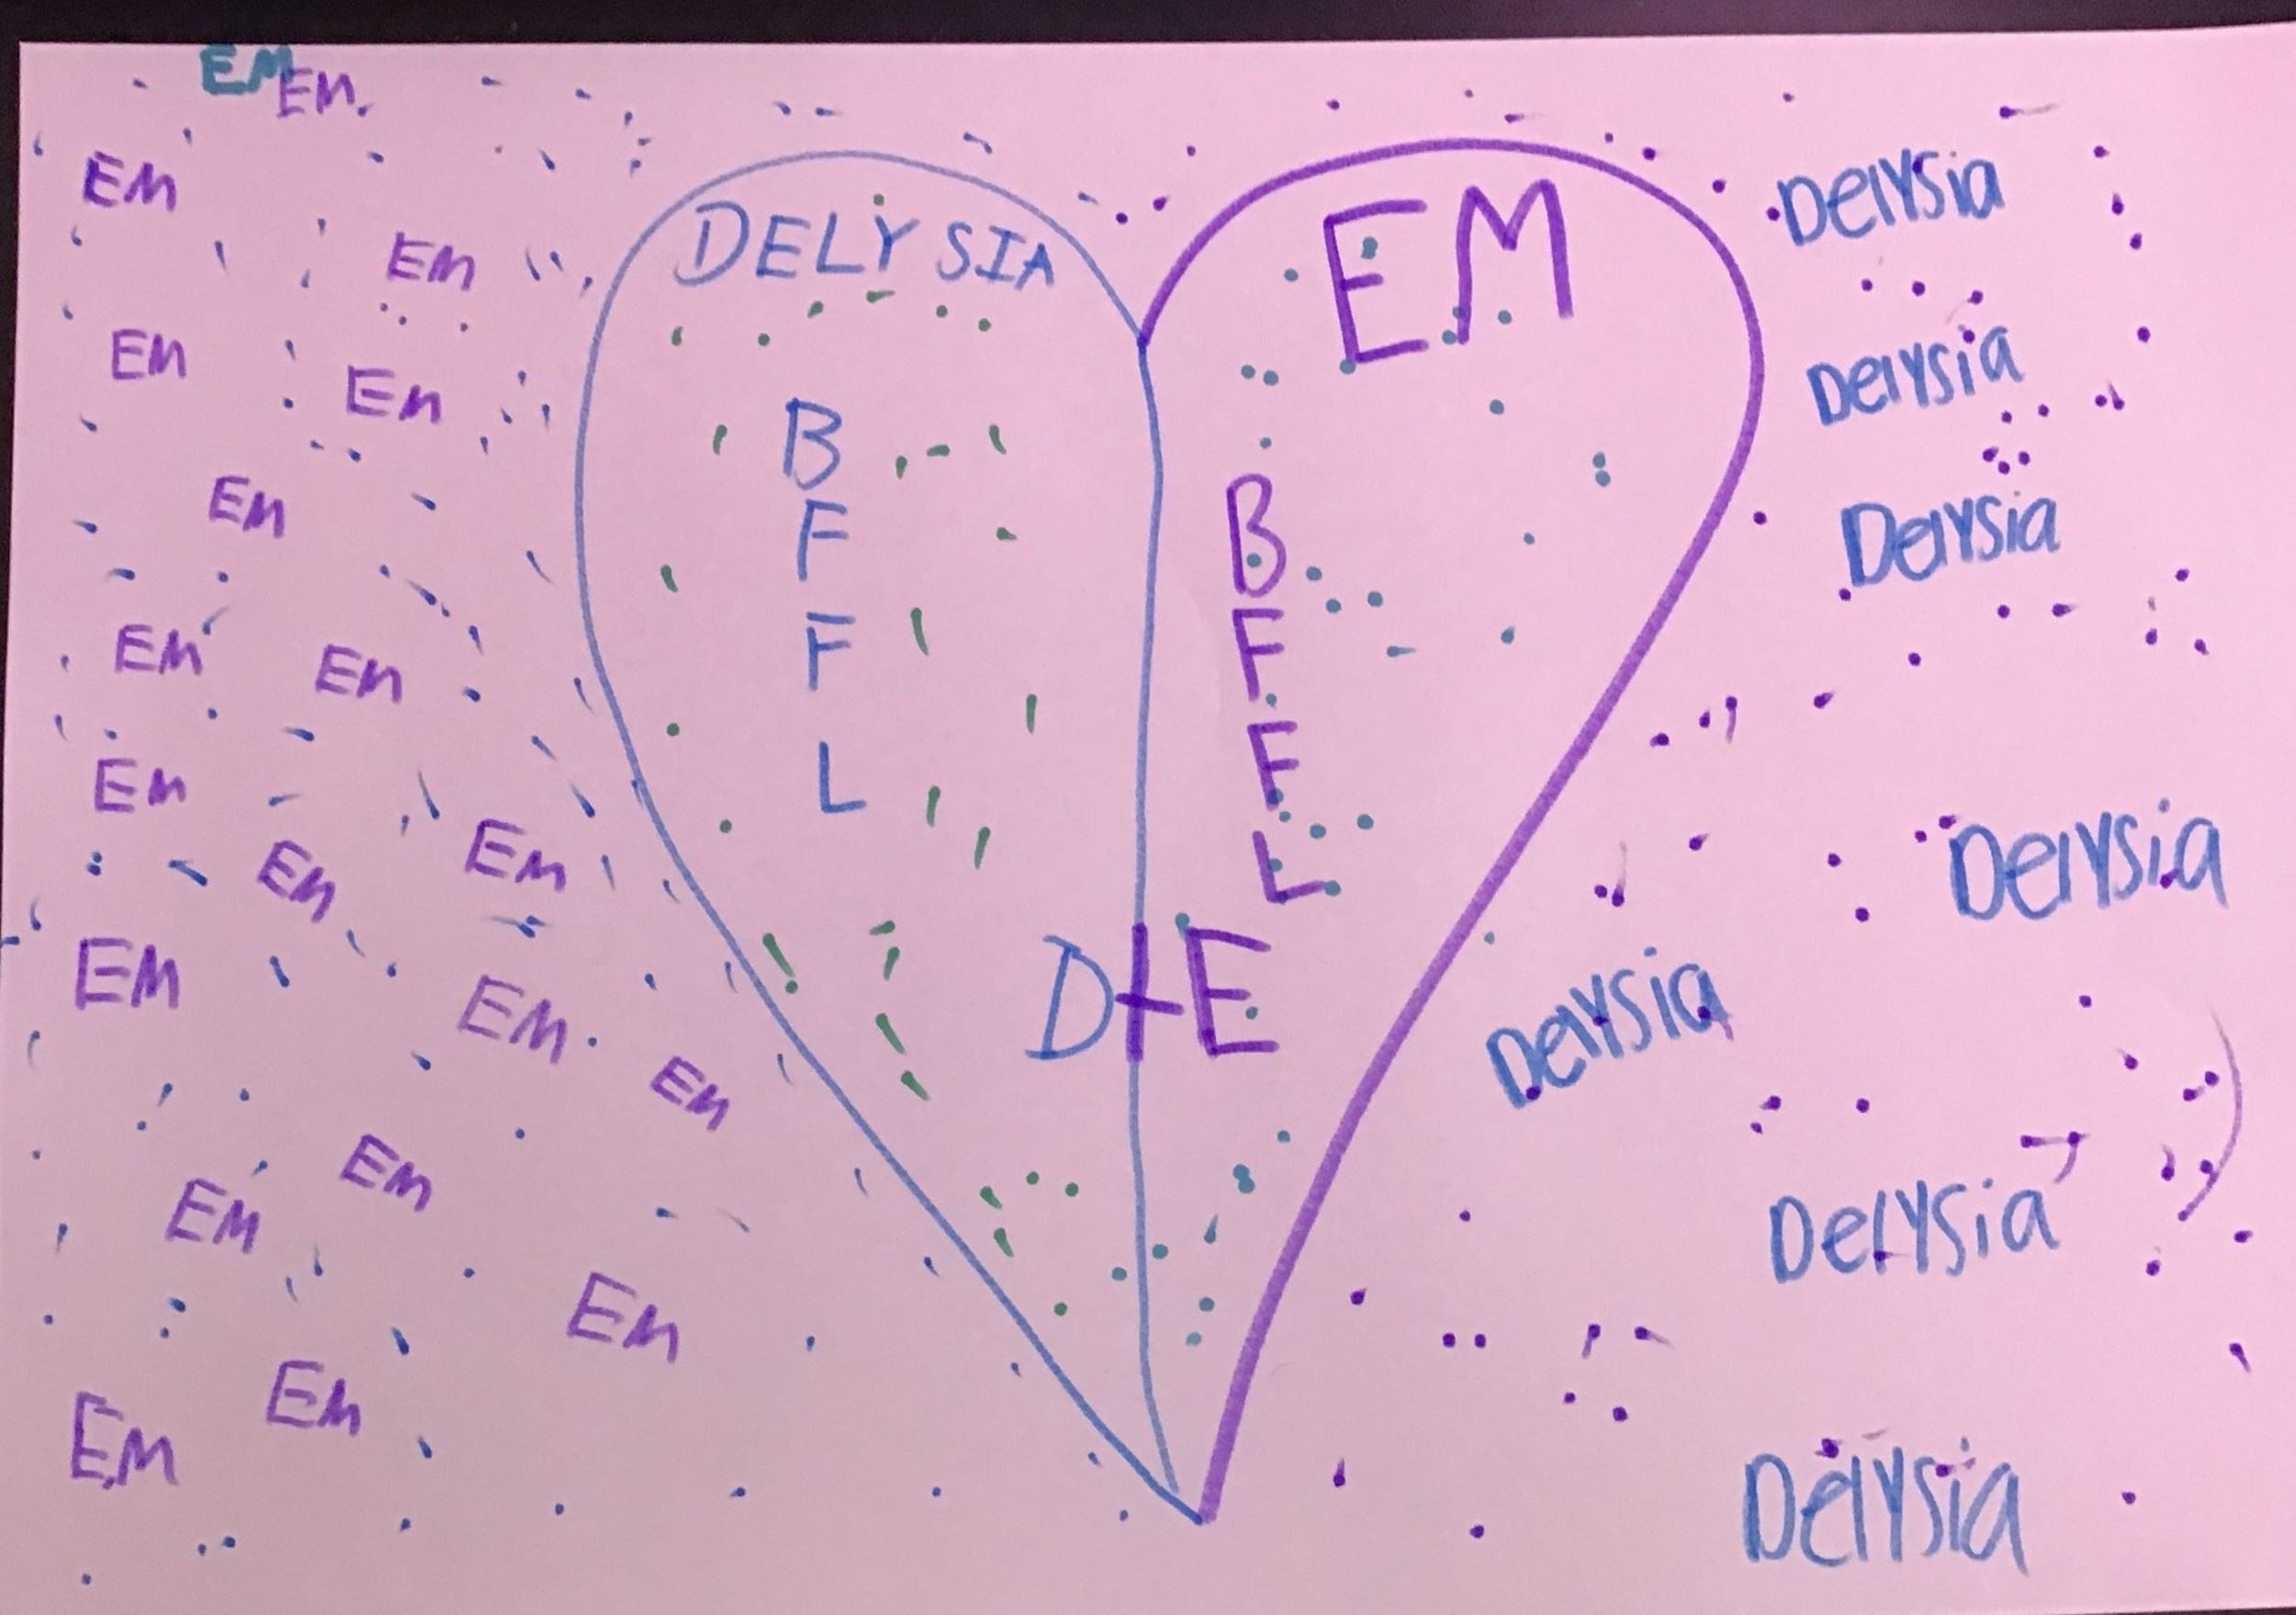 EM
Em
EM
Em
Em
En
Em
EM
En
Em
Em
Em
EM
EM
En
Em
EM
Em
Em
EM
DELYSIA
B
F
F
L
EM
B
F
F
L
D+E
Delysia
Delysia
Delysia
Delysia
Delysia
Delysia
Delysia